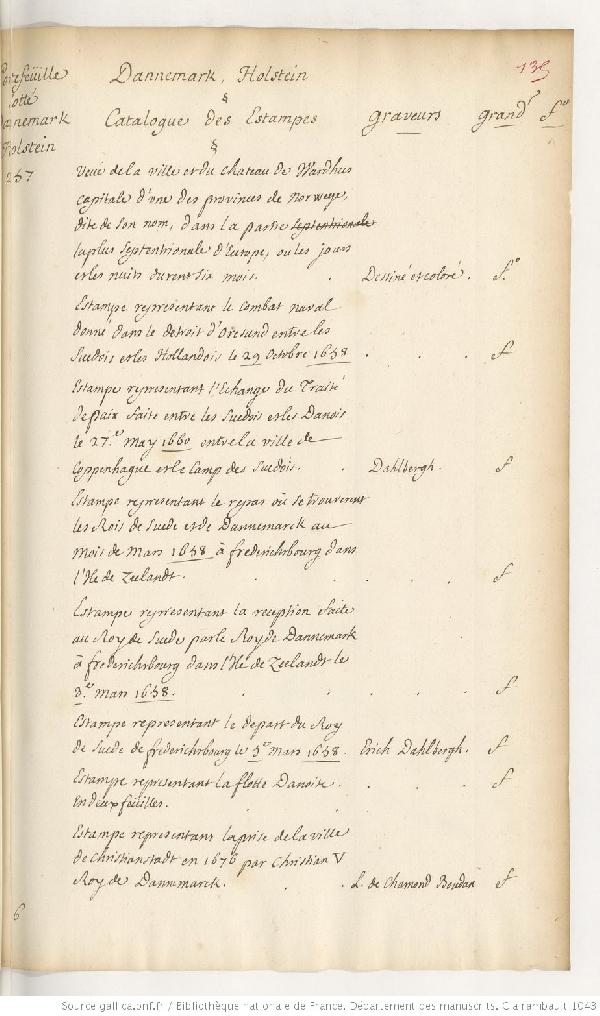 135
Portefeüille
Cotté
Danemark
Holstein
257
Dannemark, Holstein
§
Catalogue des Estampes graveurs grandr fo
§
Veüe de la ville et du chateau de Wardhus
capitale d'une des provinces de Norwege,
dite de son nom, dans la partie septentrionale
la plus septentrionale d'Europe, ou les jours
et les nuits durent six mois. Dessiné et coloré. fo
Estampe representant le combat naval
donné dans le detroit d'Oresund entre les
Suedois et les Hollandois le 29 Octobre 1658 . . . f
Estampe representant l'Echange du Traité
de paix faite entre les Suedois et les Danois
le 27e may 1660 entre la ville de
Coppenhague et le Camp des Suedois. . Dahlbergh. f
Estampe representant le repas où se trouverent
les Rois de Suede et de Dannemarck au
mois de Mars 1658 à frederichsbourg dans
l'Ile de Zeelandt. . . . . f
Estampe representant la reception faite
au Roy de Suede par le Roy de Dannemark
à frederichsbourg dans l'Ile de Zeelandt le
3e mars 1658. . . . . f
Estampe representant le depart du Roy
de Suede de frederichsbourg le 5e mars 1658. Erich Dahlbergh. f
Estampe representant la flotte Danoise . . . . f
en deux feüilles.
Estampe representant la prise de la ville
de Christianstadt en 1676 par Christian V
Roy de Dannemarck. . . L. de Chamond Boudan f
6
Source gallica.bnf.fr / Bibliothèque nationale de France. Département des manuscrits. Clairambault 1043